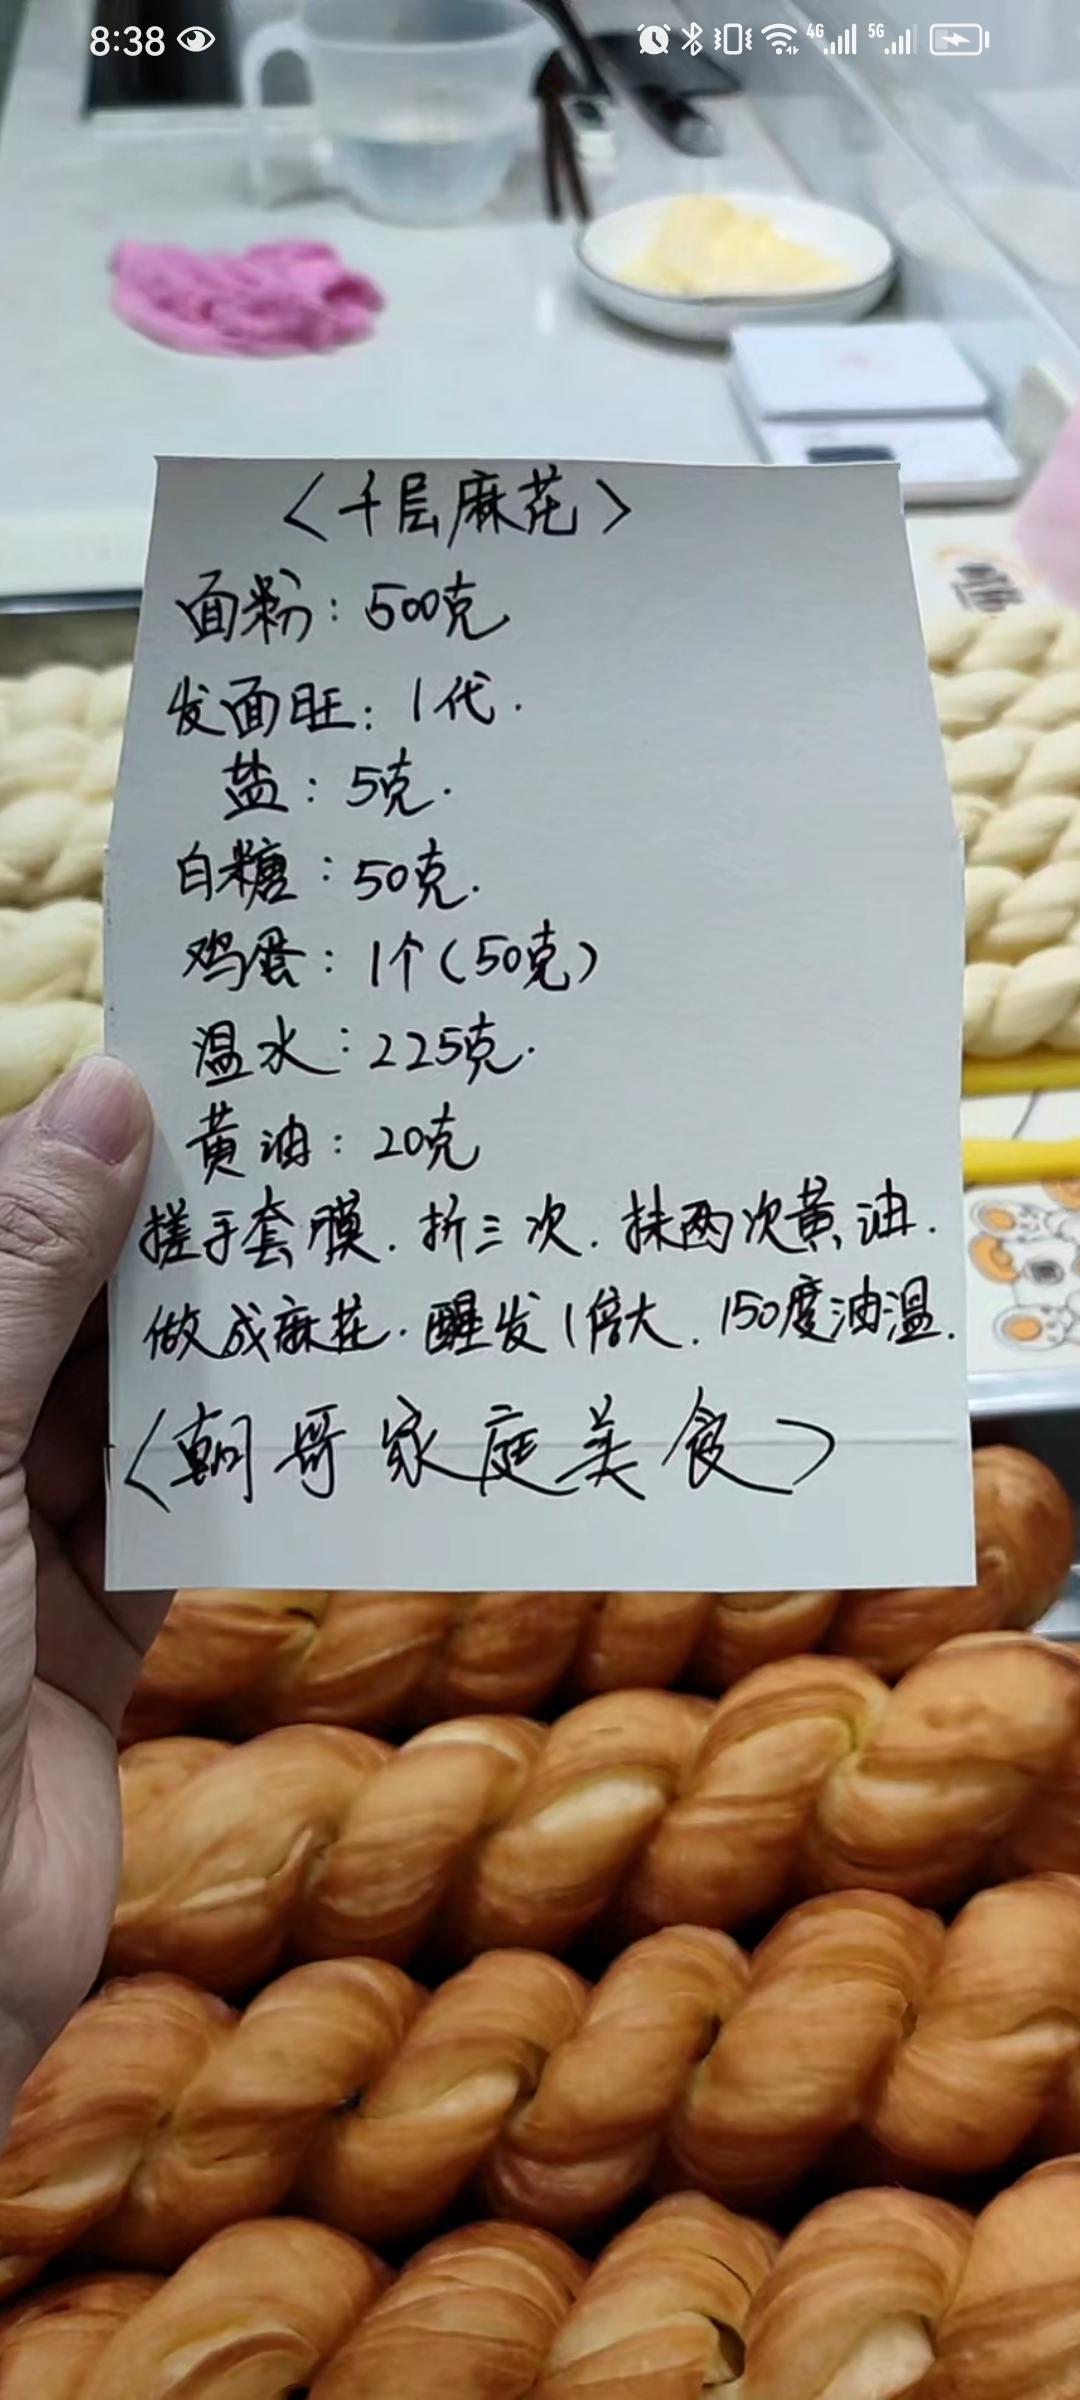 8:38
4G 5G
〈千层麻花〉
面粉：500克
发面旺：1代.
盐：5克.
白糖：50克.
鸡蛋：1个(50克)
温水：225克.
黄油：20克
搓手套膜.折三次.抹两次黄油.
做成麻花.醒发1倍大.150度油温.
〈朝哥家庭美食〉